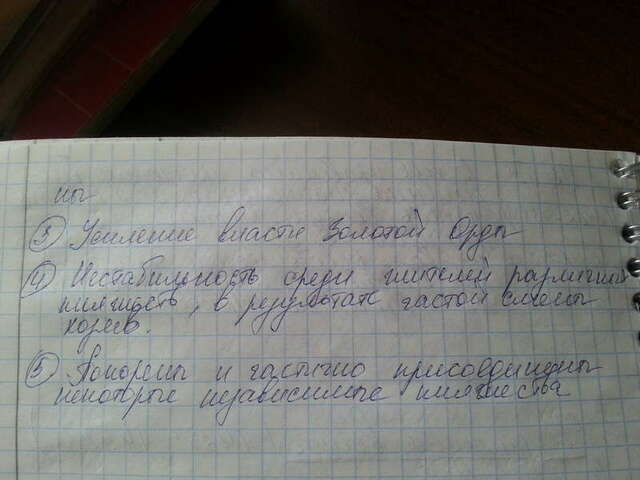 ны
③ Усиление власти Золотой Орды
④ Нестабильность среди жителей различных
княжеств, в результате частой смены
хозяев.
⑤ Покорены и частично присоединены
некоторые независимые княжества